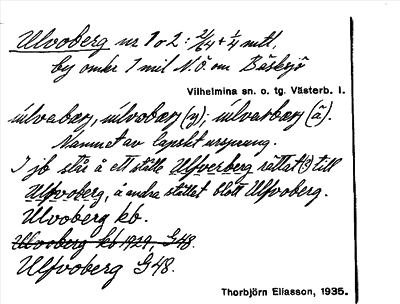 Ulvoberg nr 1 o 2: 2/64 + 1/4 mtl,
by omkr 1 mil N.Ö. om Bäsksjö
Vilhelmina sn. o. tg. Västerb. l.
ùlvabærj, ùlvobærj (y); ùlvarbærj (ä).
Namnet av lapskt ursprung.
I jb står å ett ställe Ulfverberg rättat (?) till
Ulfvoberg, å andra stället blott Ulfvoberg.
Ulvoberg kb.
Ulvoberg kb 1929, G48.
Ulfvoberg G48.
Thorbjörn Eliasson, 1935.